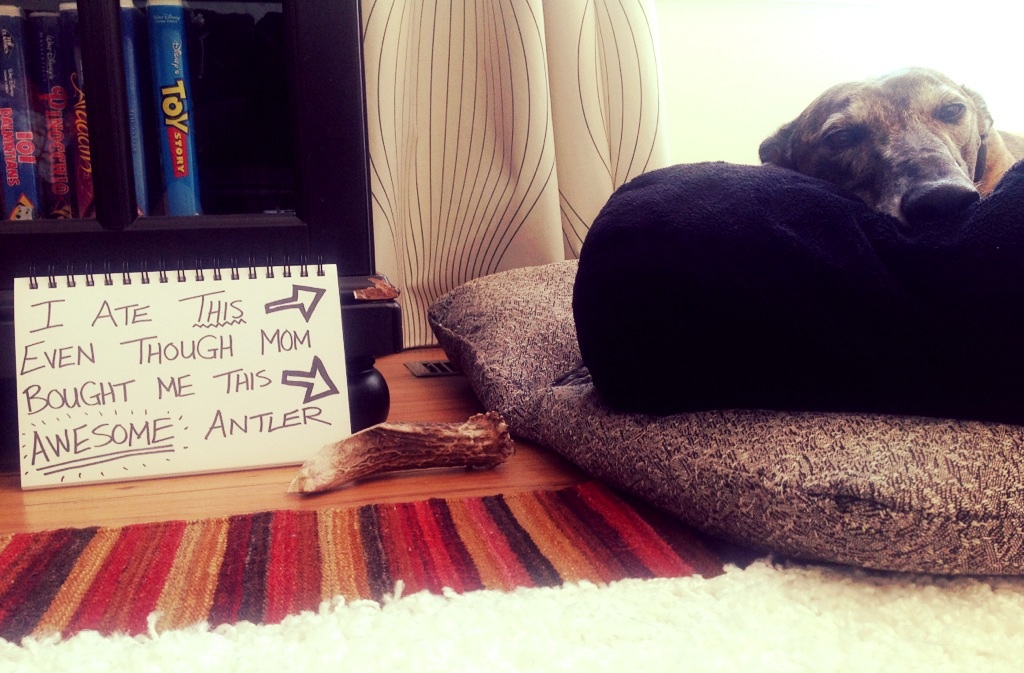 WALT DISNEY'S
101 DALMATIANS
PINOCCHIO
Aladdin
DISNEY'S
TOY
STORY
I ATE THIS
EVEN THOUGH MOM
BOUGHT ME THIS
AWESOME ANTLER